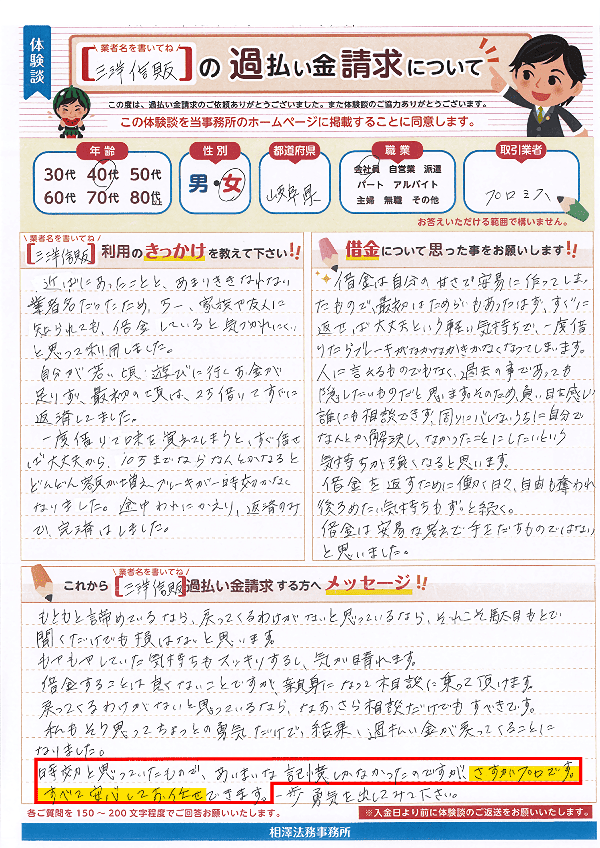 体験談
業者名を書いてね
[三洋信販]の過払い金請求について
この度は、過払い金請求のご依頼ありがとうございました。また体験談のご協力ありがとうございます。
この体験談を当事務所のホームページに掲載することに同意します。
年齢
30代 40代 50代
60代 70代 80代
性別
男・女
都道府県
岐阜県
職業
会社員 自営業 派遣
パート アルバイト
主婦 無職 その他
取引業者
プロミス
お答えいただける範囲で構いません。
業者名を書いてね
[三洋信販]利用のきっかけを教えて下さい!!
近ばにあったことと、あまりききなれない
業者名だったため、万一、家族や友人に
知られても、借金していると気づかれにくい
と思って利用しました。
自分が若い頃、遊びに行くお金が
足りず、最初の頃は、2万借りてすぐに
返済してました。
一度借りて味を覚えてしまうと、すぐ返せ
ば大丈夫から、10万までならなんとかなると
どんどん額が増えブレーキが一時効かなく
なりました。途中われにかえり、返済のみ
で、完済はしました。
借金について思った事をお願いします!!
借金は自分の甘さで安易に作ってしまっ
たもので、最初はためらいもあったはず、すぐに
返せば大丈夫という軽い気持ちで、一度借
りたらブレーキがなかなかきかなくなってしまいます。
人に言えるものでもなく、過去の事であっても
隠したいものだと思います。そのため、負い目を感じ
誰にも相談できず、周りにバレないうちに自分で
なんとか解決し、なかったことにしたいという
気持ちが強くなると思います。
借金を返すために働く日々、自由も奪われ
後ろめたい気持ちもずっと続く。
借金は安易な考えで手をだすものではない
と思いました。
業者名を書いてね
これから[三洋信販]過払い金請求する方へメッセージ!!
もともと諦めているなら、戻ってくるわけがないと思っているなら、それこそ駄目もとで
聞くだけでも損はないと思います。
もやもやしていた気持ちもスッキリするし、気が晴れます。
借金することは良くないことですが、親身になって相談に乗って頂けます。
戻ってくるわけがないと思っているなら、なおさら相談だけでもすべきです。
私もそう思ってちょっとの勇気だけで、結果、過払い金が戻ってくることに
なりました。
時効と思っていたもので、あいまいな記憶しかなかったのですが、さすがプロです。
すべて安心してお任せできます。一歩勇気を出してみて下さい。
各ご質問を150～200文字程度でご回答お願いいたします。
※入金日より前に体験談のご返送をお願いいたします。
相澤法務事務所